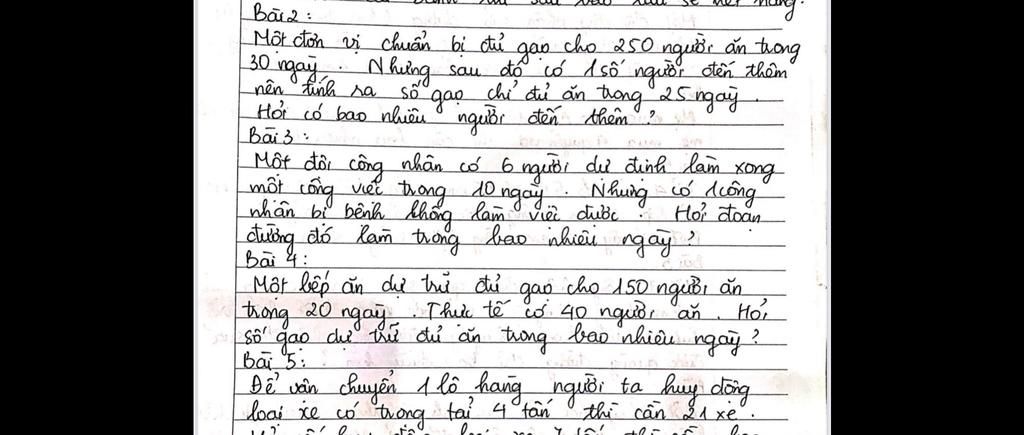 Bài 2 :
Một đơn vị chuẩn bị đủ gạo cho 250 người ăn trong
30 ngày . Nhưng sau đó có 1 số người đến thêm
nên tính ra số gạo chỉ đủ ăn trong 25 ngày .
Hỏi có bao nhiêu người đến thêm ?
Bài 3 :
Một đôi công nhân có 6 người dự định làm xong
một công việc trong 10 ngày . Nhưng có 1 công
nhân bị bệnh không làm việc được . Hỏi đoạn
đường đó làm trong bao nhiêu ngày ?
Bài 4 :
Một bếp ăn dự trữ đủ gạo cho 150 người ăn
trong 20 ngày . Thực tế có 40 người ăn . Hỏi
số gạo dự trữ đủ ăn trong bao nhiêu ngày ?
Bài 5 :
Để vận chuyển 1 lô hàng người ta huy động
loại xe có trong tải 4 tấn thì cần 21 xe .